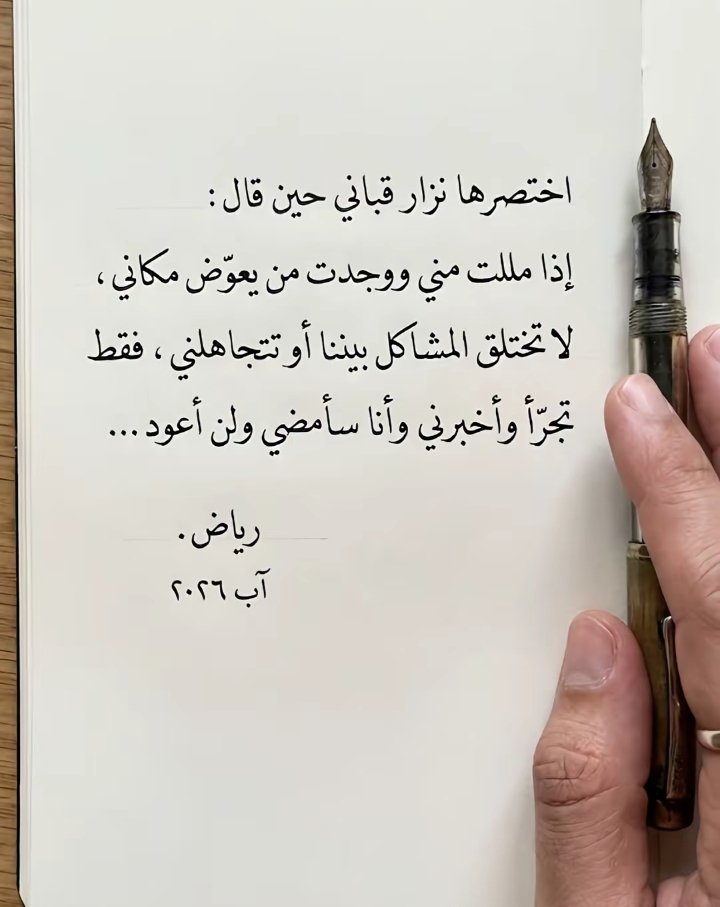 اختصرها نزار قباني حين قال :
إذا مللت مني ووجدت من يعوّض مكاني ،
لا تختلق المشاكل بيننا أو تتجاهلني ، فقط
تجرّأ وأخبرني وأنا سأمضي ولن أعود ...
رياض .
آب ٢٠٢٦